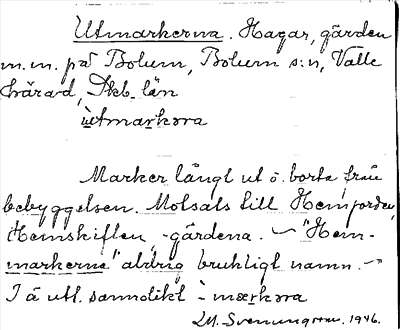 Utmarkerna. Hagar, gärden
m.m. på Bolum, Bolum s:n, Valle
härad, Skb. län
ùtmarkora
Marker långt ut o. borta från
bebyggelsen. Motsats till Hemjorden,
Hemskiften, -gärdena. – "Hem-
markerna" aldrig brukligt namn. –
I ä utt. sannolikt -mærkora
M. Svenungsson. 1946.